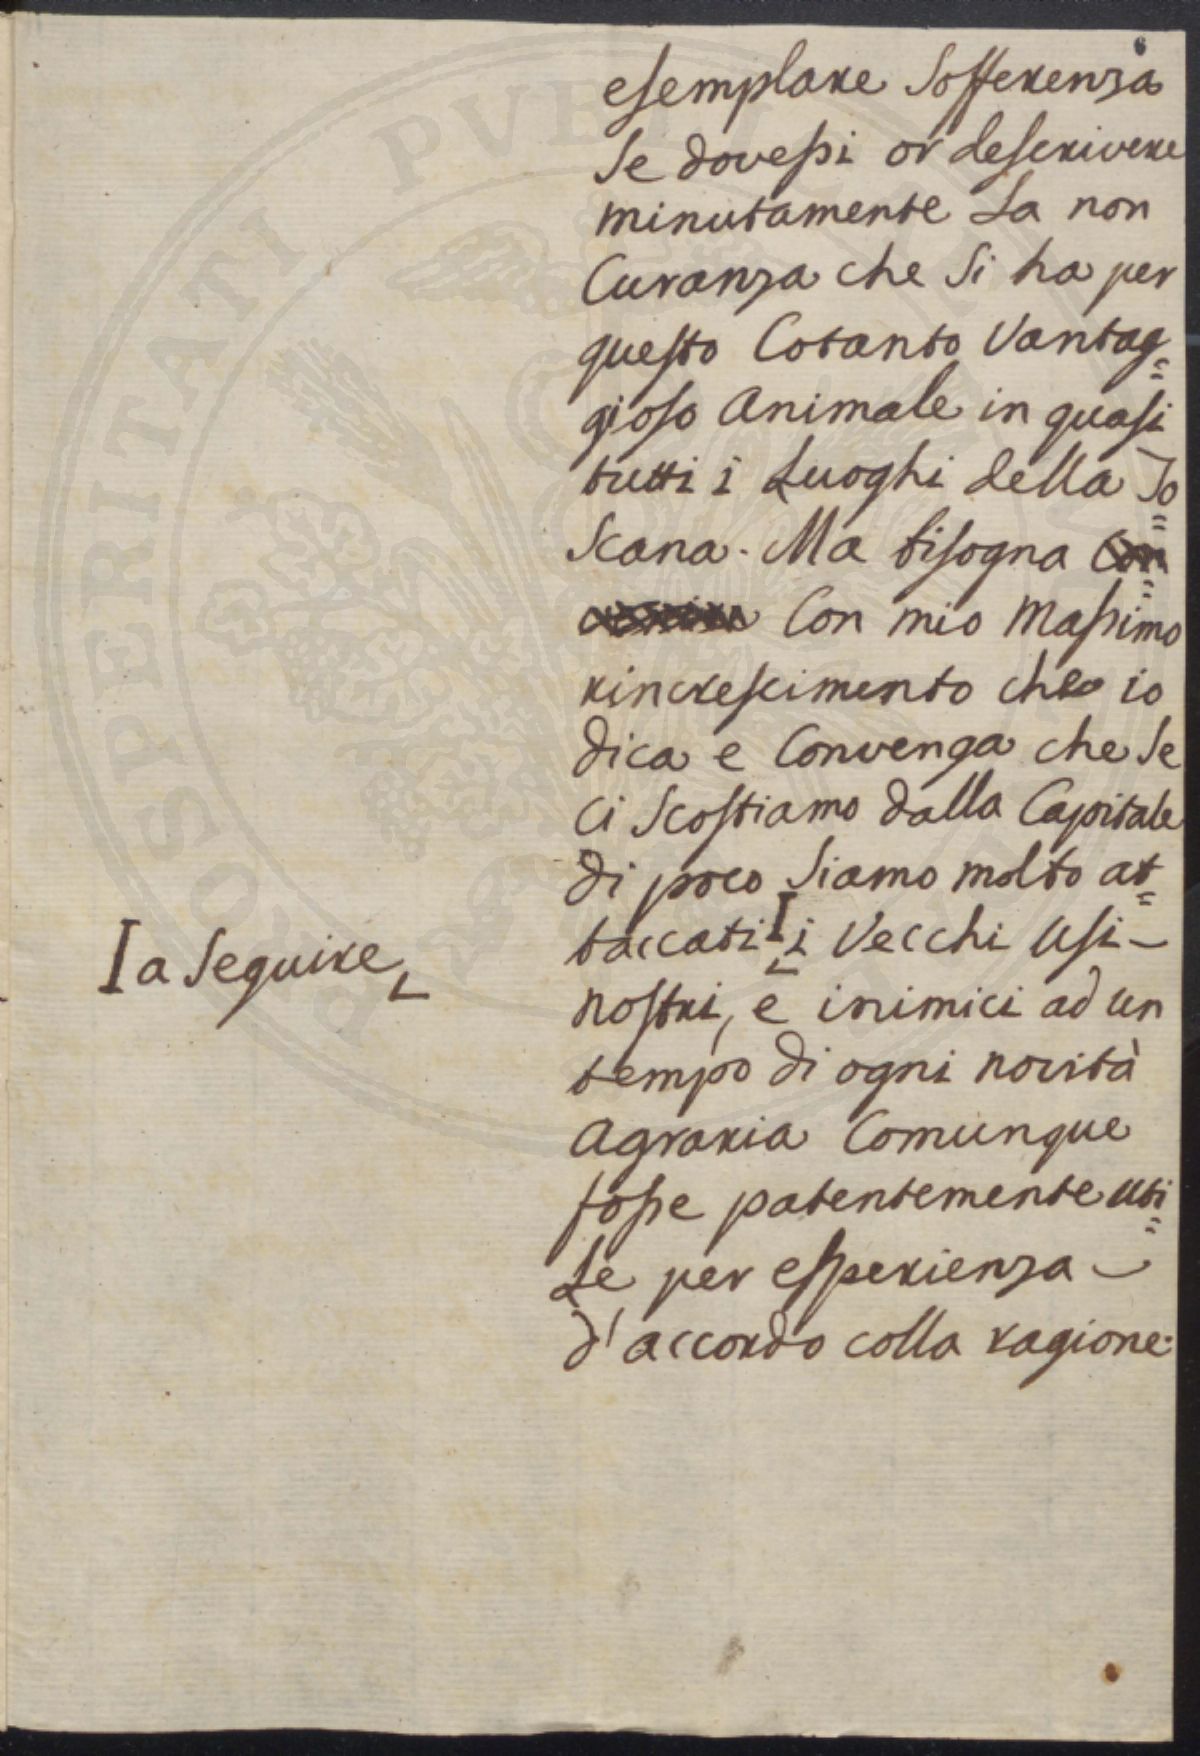 6
esemplare Sofferenza
Se dovessi or descrivere
minutamente La non
Curanza che Si ha per
questo Cotanto Vantag=
gioso Animale in quasi
tutti i Luoghi della To=
Scana. Ma bisogna Con=
Con mio Massimo
rincrescimento che io
dica e Convenga che Se
Ci Scostiamo dalla Capitale
di poco Siamo molto at=
taccati i Vecchi Usi-
I a Seguire
nostri, e inimici ad un
tempo di ogni novità
Agraria Comunque
fosse patentemente uti=
Le per esperienza -
d'accordo colla ragione.
PROSPERITATI PUBLI